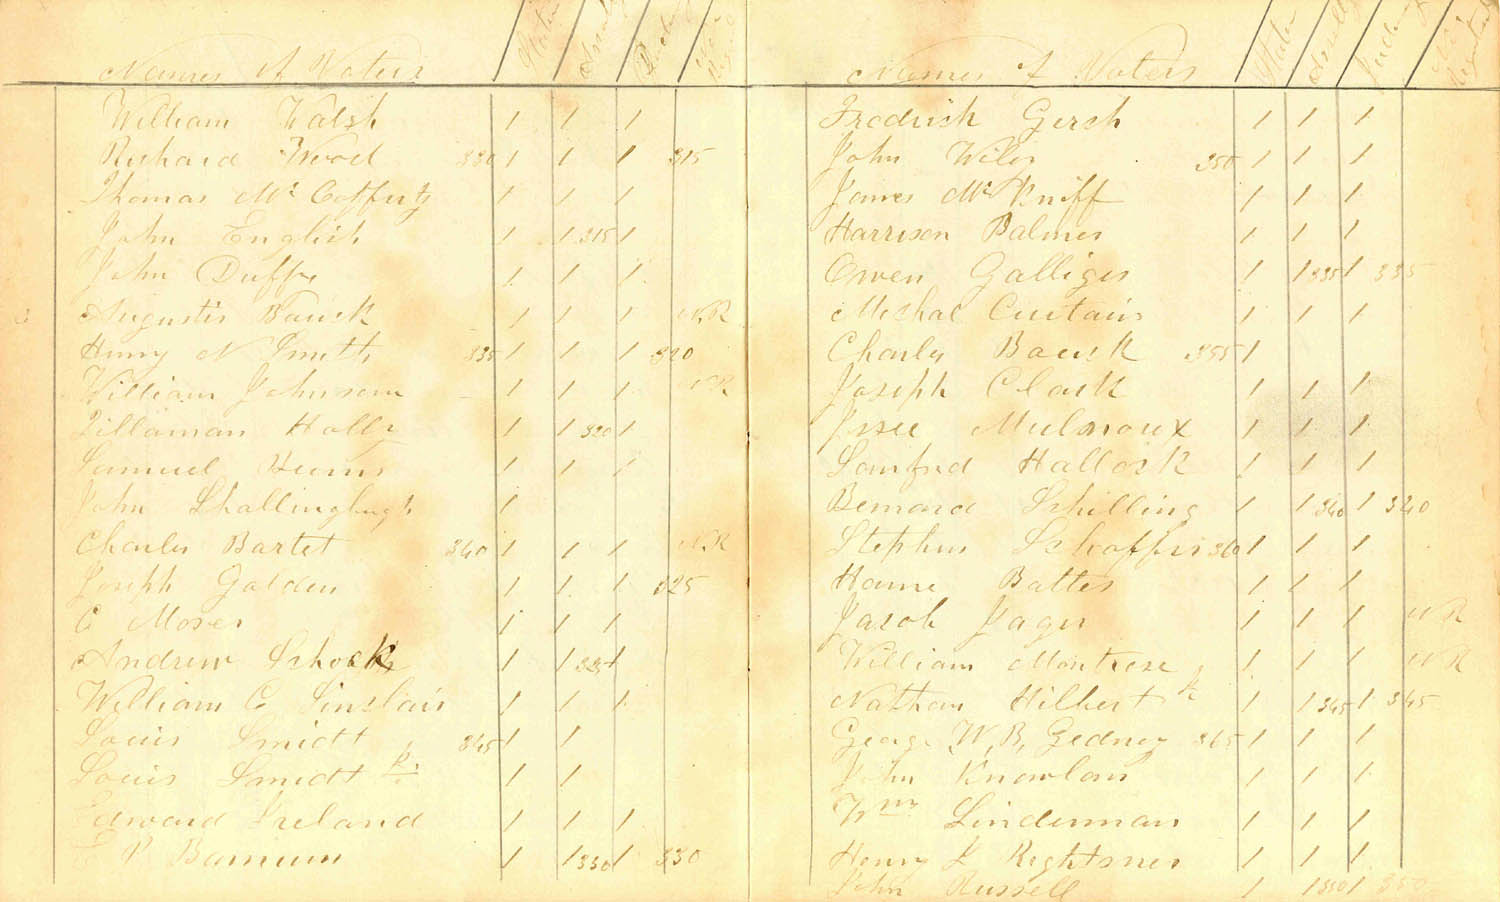 Names of Voters State Assembly No Regist
William Walsh 1 1 1
Richard Wood 330 1 1 1 315
Thomas Mc Coffuty 1 1 1
John English 1 1 315 1
John Duffy 1 1 1
Augustis Bauck 1 1 1 N.R
Henry N Smith 335 1 1 1 320
William Johnson 1 1 1 N R
Tillaman Holly 1 1 320 1
Samuel 1 1 1
John Shallingbugh 1
Charles Bartet 340 1 1 1 N.R
Joseph Golden 1 1 1 325
C Moser 1 1 1
Andrew Schock 1 1 1
William C Sinslair 1 1 1
Louis Smidt 345 1 1
Louis Smidt 1 1
Edward Ireland 1 1 1
E P Barnum 1 1 330 1 330
Names of Voters State Assembly No Registered
Fredrick Gersh 1 1 1
John Wiler 350 1 1 1
James Mc Kniff 1 1 1
Harrison Palmer 1 1 1
Owen Galliger 1 1 335 1 335
Mechal Curtain 1 1 1
Charles Bauck 355 1
Joseph Clark 1 1 1
Jesse Mulnoux 1 1 1
Sanford Hallock 1 1 1
Bernard Schilling 1 1 340 1 340
Stephen Schaffer 360 1 1 1
Battes 1 1 1
Jacob Jager 1 1 1 N R
William Montrose 1 1 1 N R
Nathan Hilbert 1 1 345 1 345
George W. B. Gedney 365 1 1 1
John Knowlan 1 1 1
Wm Linderman 1 1 1
Henry L Rightmer 1 1 1
John Russell 1 1 350 1 350